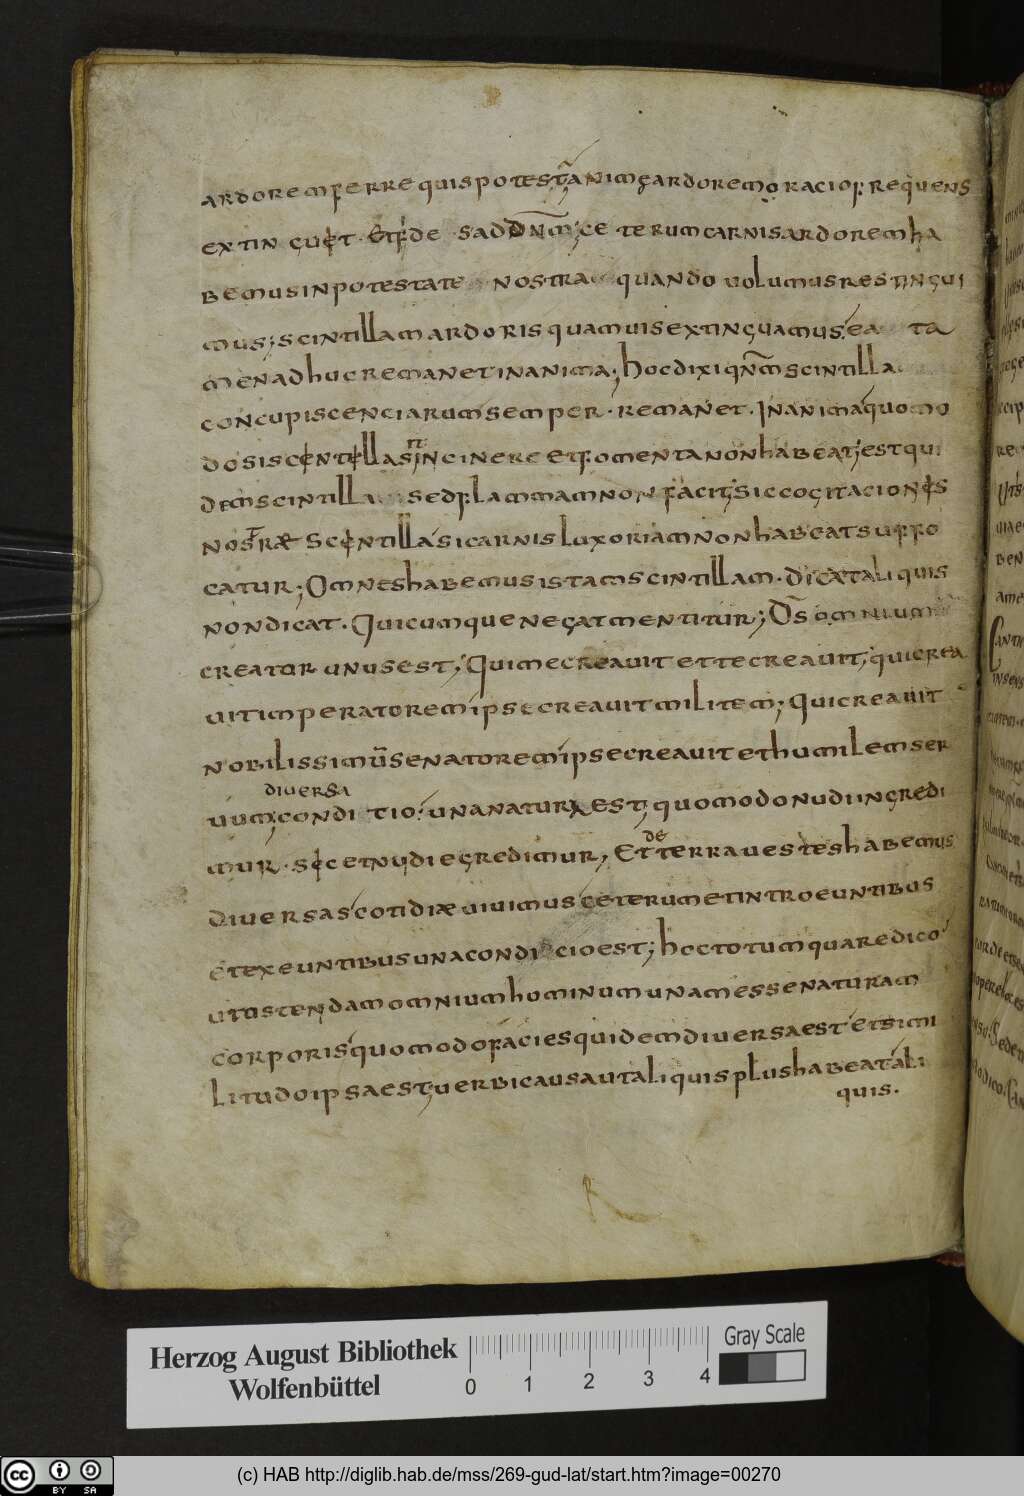 ardorem ferre quis potest; anim; ardorem oracio frequens
extinguet. Et fide sad dnm; ceterum carnis ardorem ha
bemus in potestate nostra quando uolumus restingui
mus; scintillam ardoris quamuis extinguamus. ea ta
men adhuc remanet in anima; hoc dixi qnm scintilla
concupiscenciarum semper. remanet. In anima quomo
do si scintillas in cinere et fomenta non habeat; est qui
dem scintilla sed flammam non facit; sic cogitaciones
nostræ scentillas si carnis luxoriam non habeat suffo
catur; Omnes habemus istam scintillam. dicat aliquis
non dicat. Quicumque negat mentitur; Ds omnium
creator unus est; Qui me creauit et te creauit; qui crea
uit imperatorem ipse creauit militem; qui creauit
nobilissimū senatorem ipse creauit et humilem ser
diuersa
uum; conditio. una natura est; quomodo nudi ingredi
mur. sic et nudi egredimur, Et de terra uestes habemus
diuersas cotidiæ uiuimus ceterum et introeuntibus
et exeuntibus una condicio est; hoc totum quare dico
ut ostendam omnium hominum unam esse naturam
corporis quomodo facies quidem diuersa est et simi
litudo ipsa est; uerbi causa ut aliquis plus habeat ali
quis.
Herzog August Bibliothek
Wolfenbüttel
0 1 2 3 4
Gray Scale
(c) HAB http://diglib.hab.de/mss/269-gud-lat/start.htm?image=00270
cc BY SA